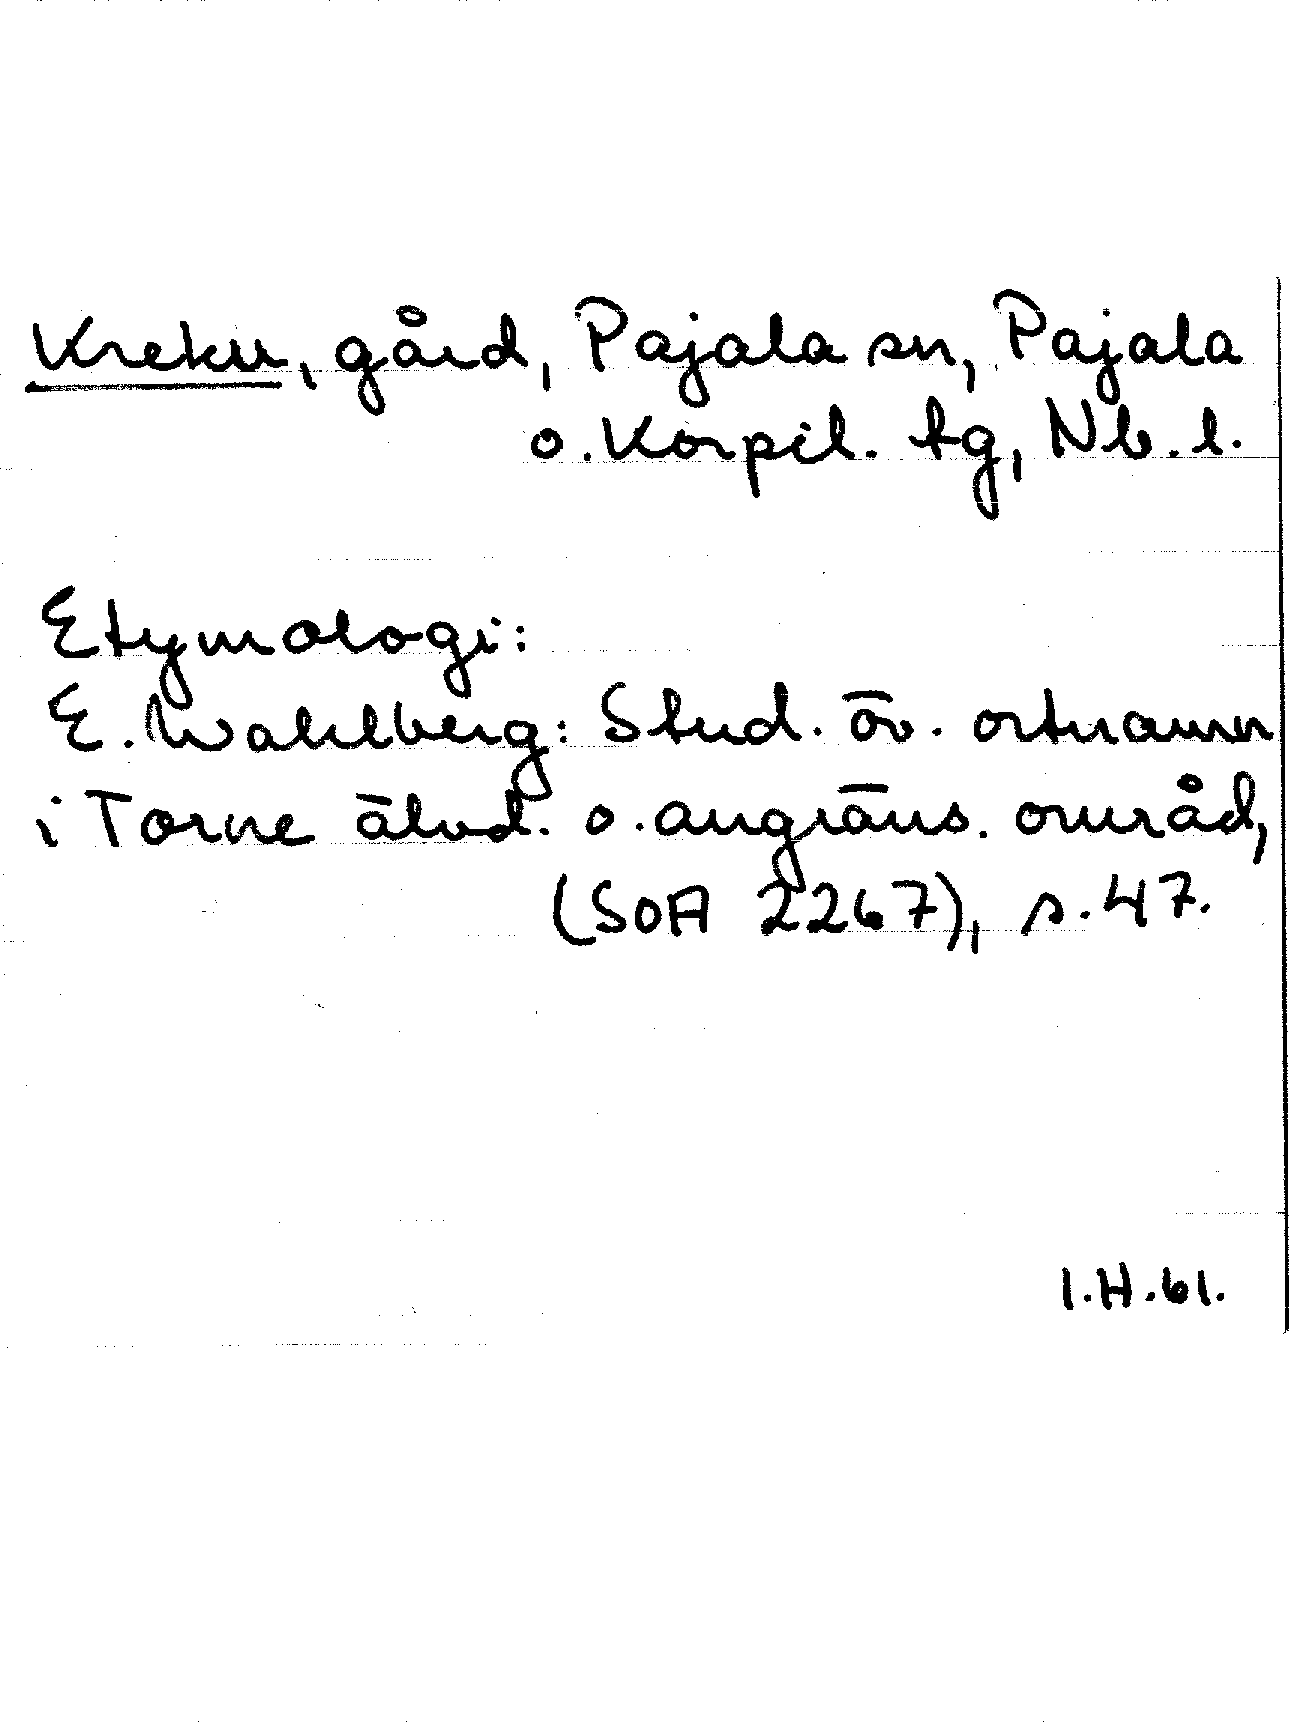 Kreku, gård, Pajala sn, Pajala
o. Korpil. tg, Nb. l.
Etymologi:
E. Wahlberg: Stud. öv. ortnamn
i Torne älvd. o. angräns. områd,
(SOA 2267), s. 47.
I.H.61.